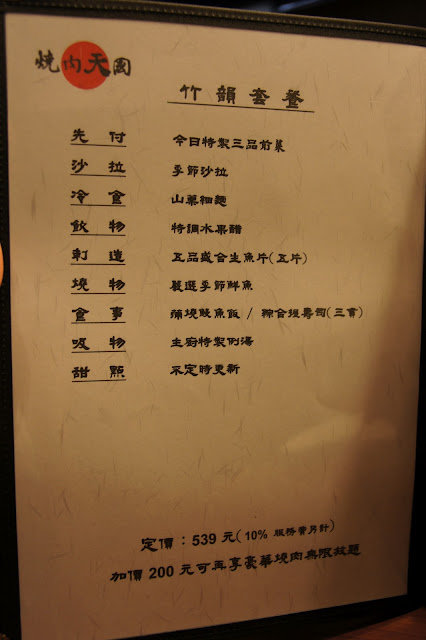 燒肉天國
竹韻套餐
先付 今日特製三品前菜
沙拉 季節沙拉
冷食 山藥細麵
飲物 特調水果醋
刺造 五品盛合生魚片(五片)
燒物 嚴選季節鮮魚
食事 蒲燒鰻魚飯 / 綜合握壽司(三貫)
吸物 主廚特製例湯
甜點 不定時更新
定價：539 元( 10% 服務費另計)
加價 200 元可再享豪華燒肉無限放題